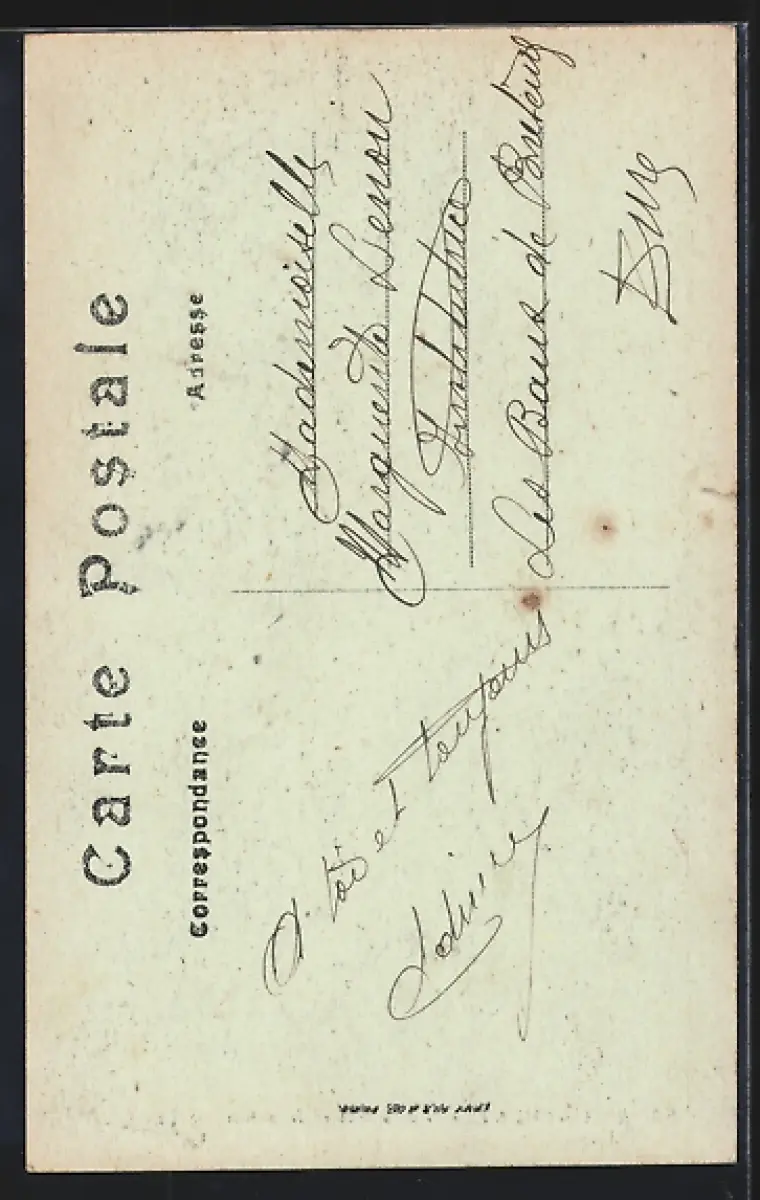 Carte Postale
Correspondance
Adresse
A toi et toujours
Mademoiselle
Marguerite
Institutrice
Les Baux de Breteuil
Eure